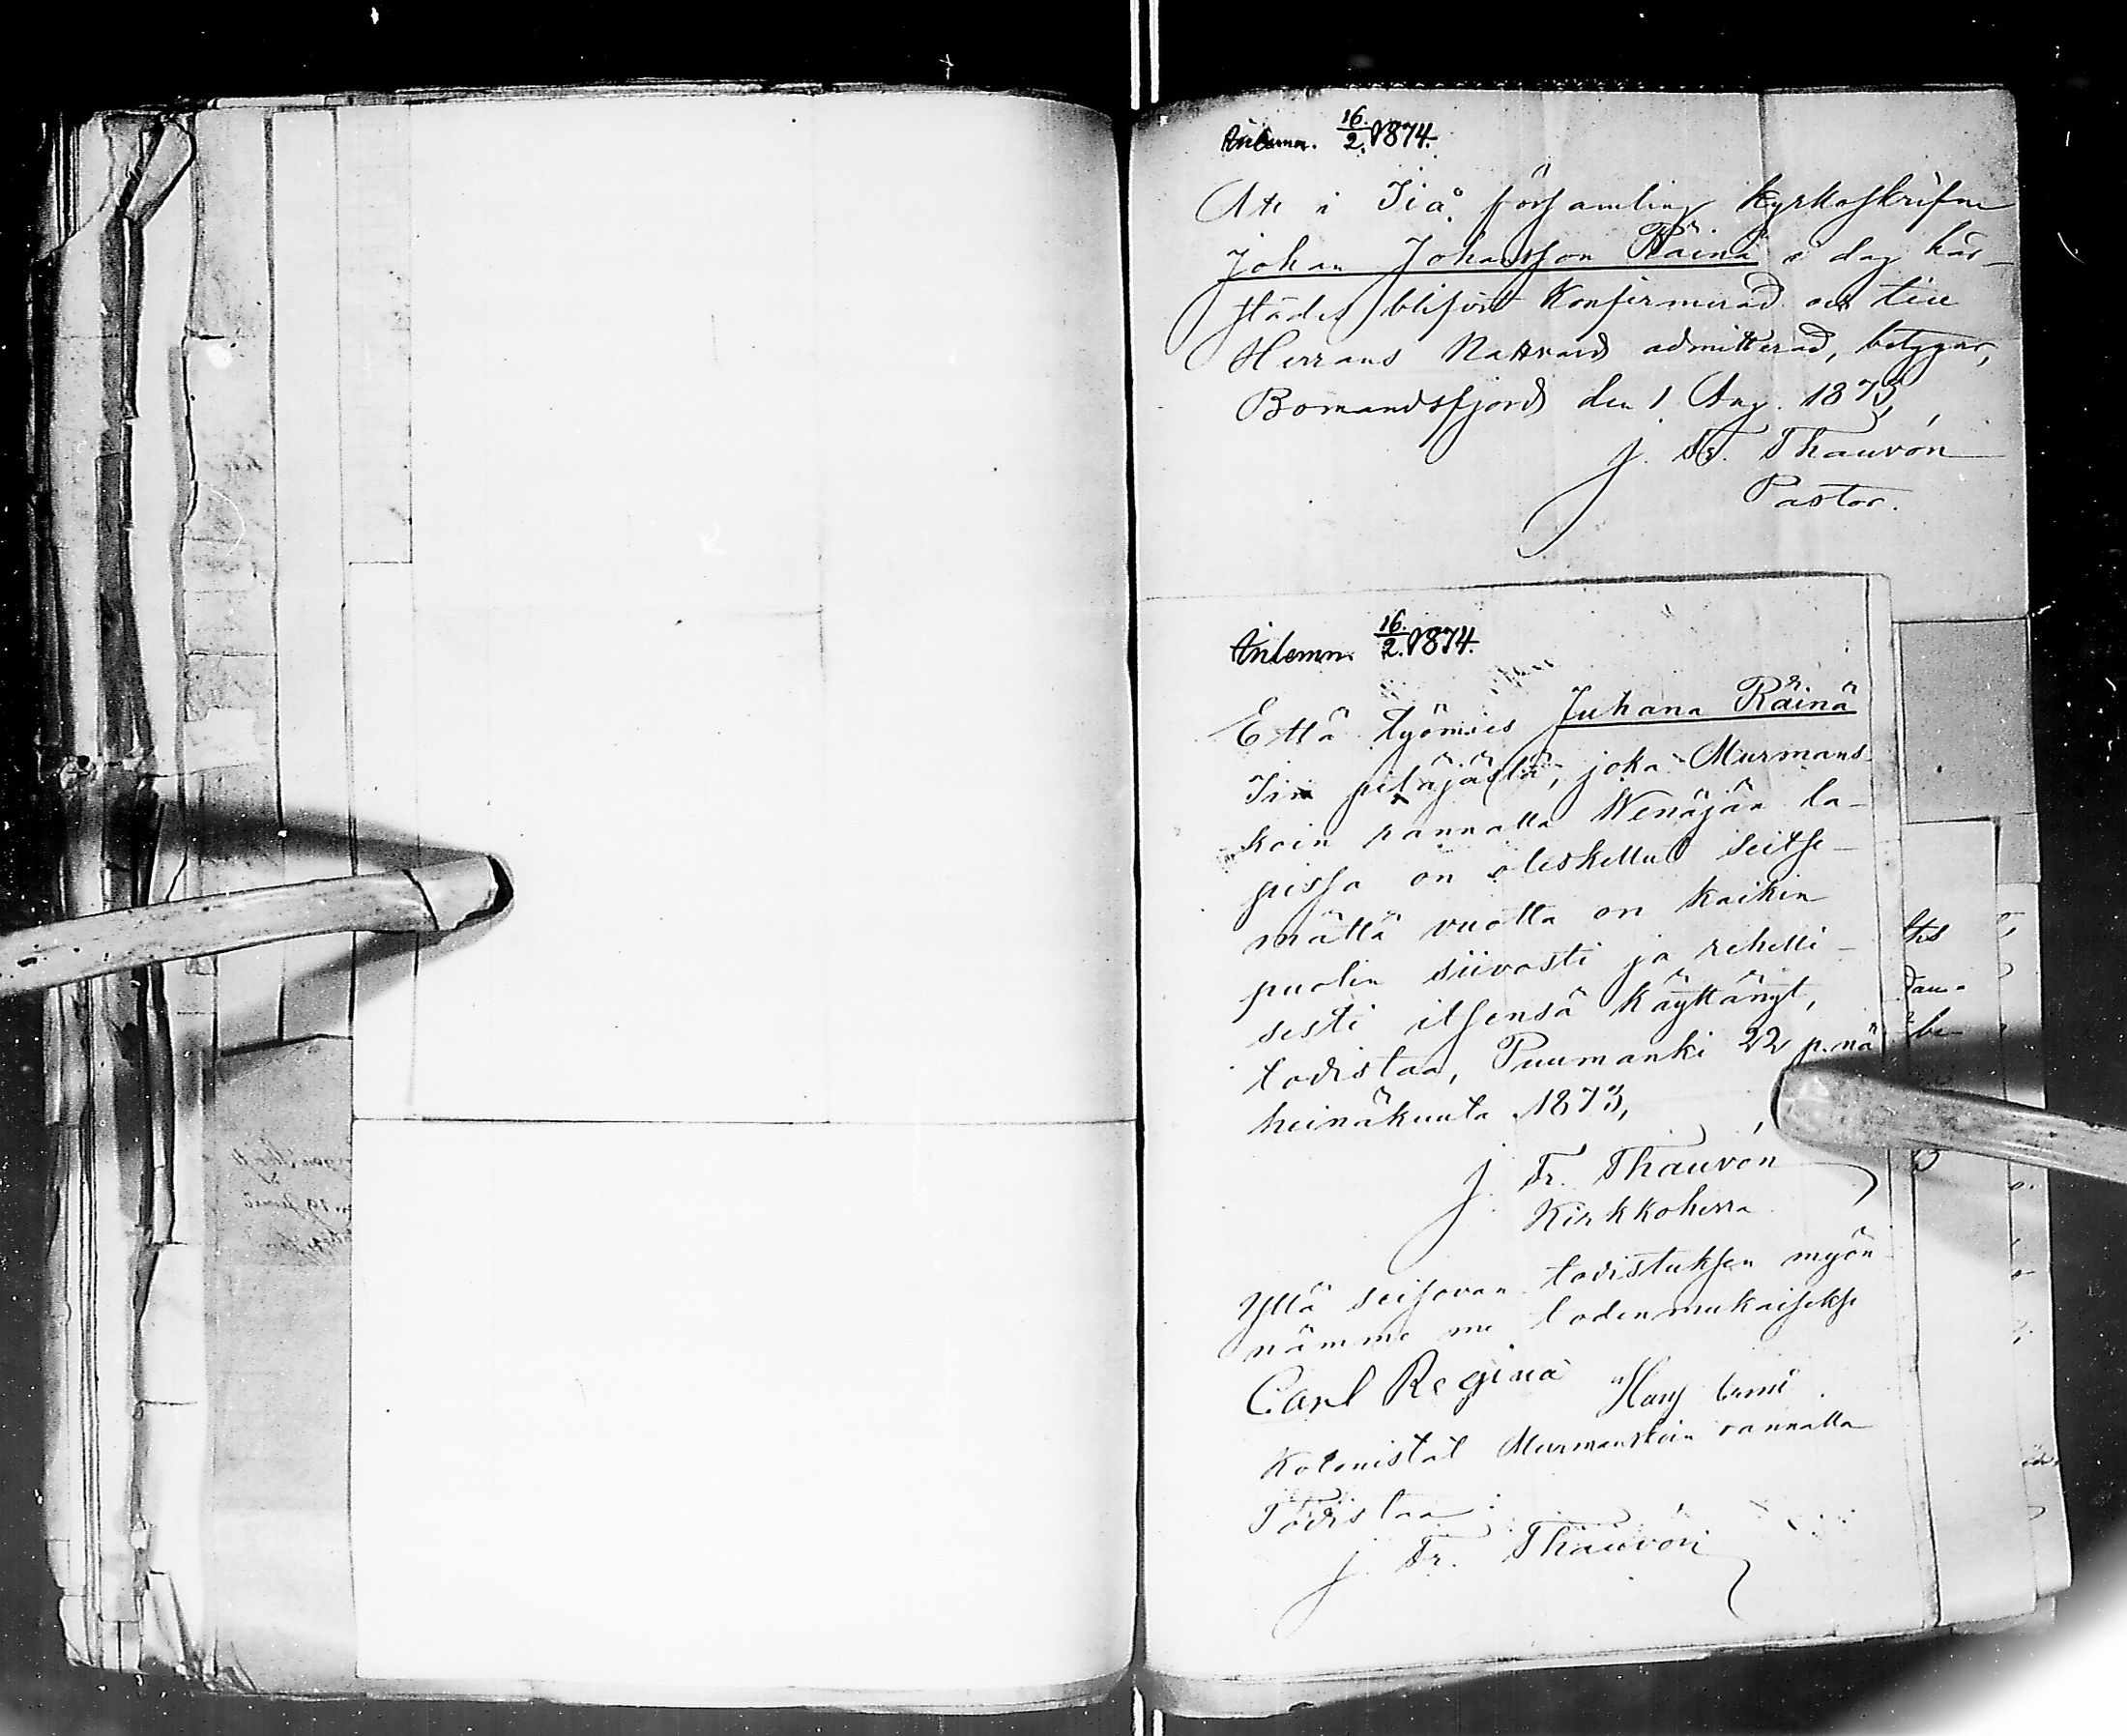 Anlemn. 16/2. 1874.
Att i Iiå församling kyrkoskrifne
Johan Johansson Räinä i dag här-
städes blifvit Konfirmerad och till
Herrans Nattvard admitterad, betygar,
Bomandsfjord den 1 Aug. 1873,
J. Fr. Thauvón
Pastor.
Anlemn. 16/2. 1874.
Että työmies Juhana Räinä
Iin pitäjästä, joka Murmans-
koin rannalla Wenäjän la-
pissa on oleskellut seitse-
mättä vuotta on kaikin
puolin siivosti ja rehelli-
sesti itsensä käyttänyt,
todistaa, Puumanki 22 p.nä
heinäkuuta 1873,
J. Fr. Thauvón
Kirkkoherra
Yllä seisovan todistuksen myön
nämme me todenmukaiseksi
Carl Regina Hans
Kolonistat Murmanskoin rannalla
Todistaa:
J. Fr. Thauvón